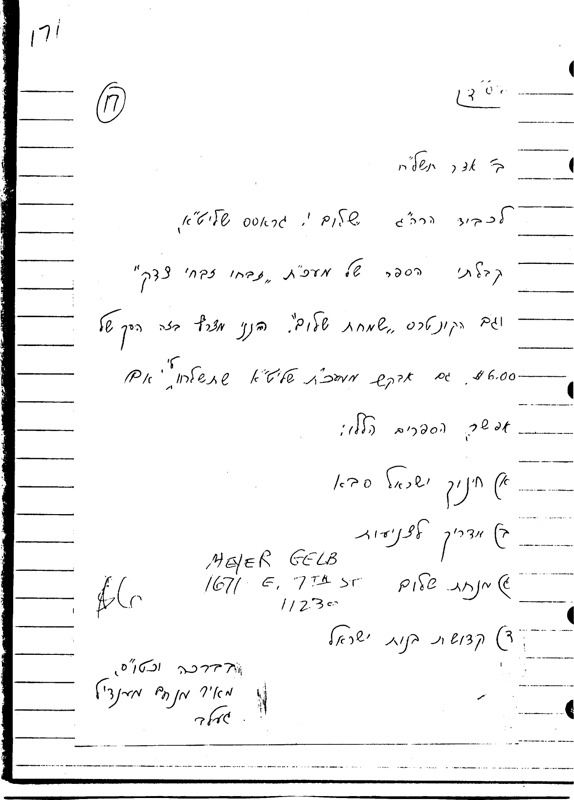 171
17
בס"ד
ב' אדר תשל"ח
לכבוד הרה"ג שלום י. גראסס שליט"א,
קבלתי הספר של מעכ"ת „זבחו זבחי צדק"
וגם הקונטרס „שמחת שלום". הנני מצרף בזה הסך של
$6.00. גם אבקש ממעכ"ת שליט"א שתשלחו לי אם
אפשר, הספרים הללו:
א) חינוך ישראל סבא
ב) מדריך לצניעות
MEJER GELB
ג) מנחת שלום 1671 E. 7TH ST
11230
ד) קדושת בנות ישראל
בברכה וכטו"ס,
מאיר מנחם מענדיל
געלב